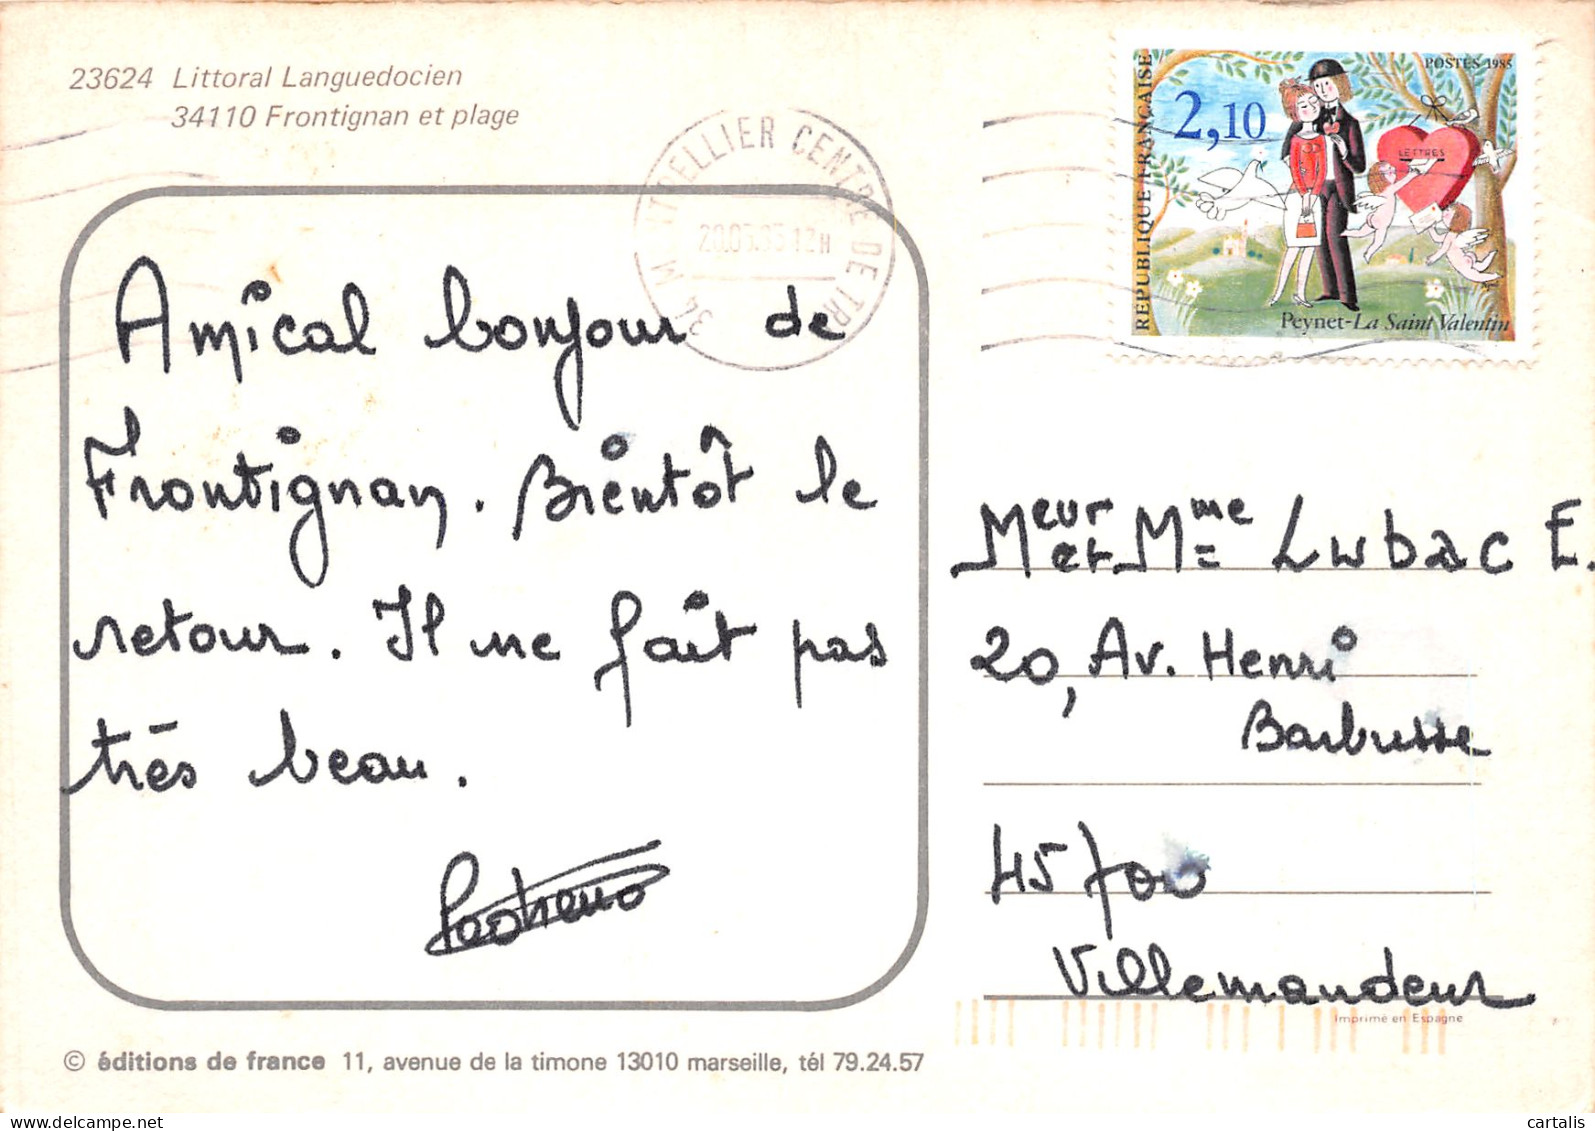 23624 Littoral Languedocien
34110 Frontignan et plage
RÉPUBLIQUE FRANÇAISE
2,10
POSTES 1985
LETTRES
Peynet-La Saint Valentin
34 M TPELLIER CENTRE DE TR
12H
Amical bonjour de
Frontignan. Bientôt le
retour. Il ne fait pas
très beau.
Meur et Mme Lubac E.
20, Av. Henri
Barbusse
45700
Villemandeur
Imprimé en Espagne
© éditions de france 11, avenue de la timone 13010 marseille, tél 79.24.57
cartalis